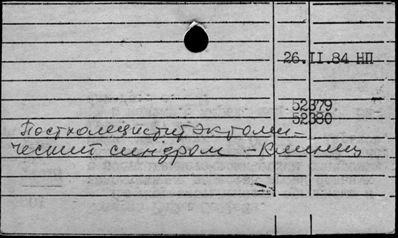 26.II.84 НП
52379
52380
Постхолецистит эктоми-
ческий синдром - Клиниц